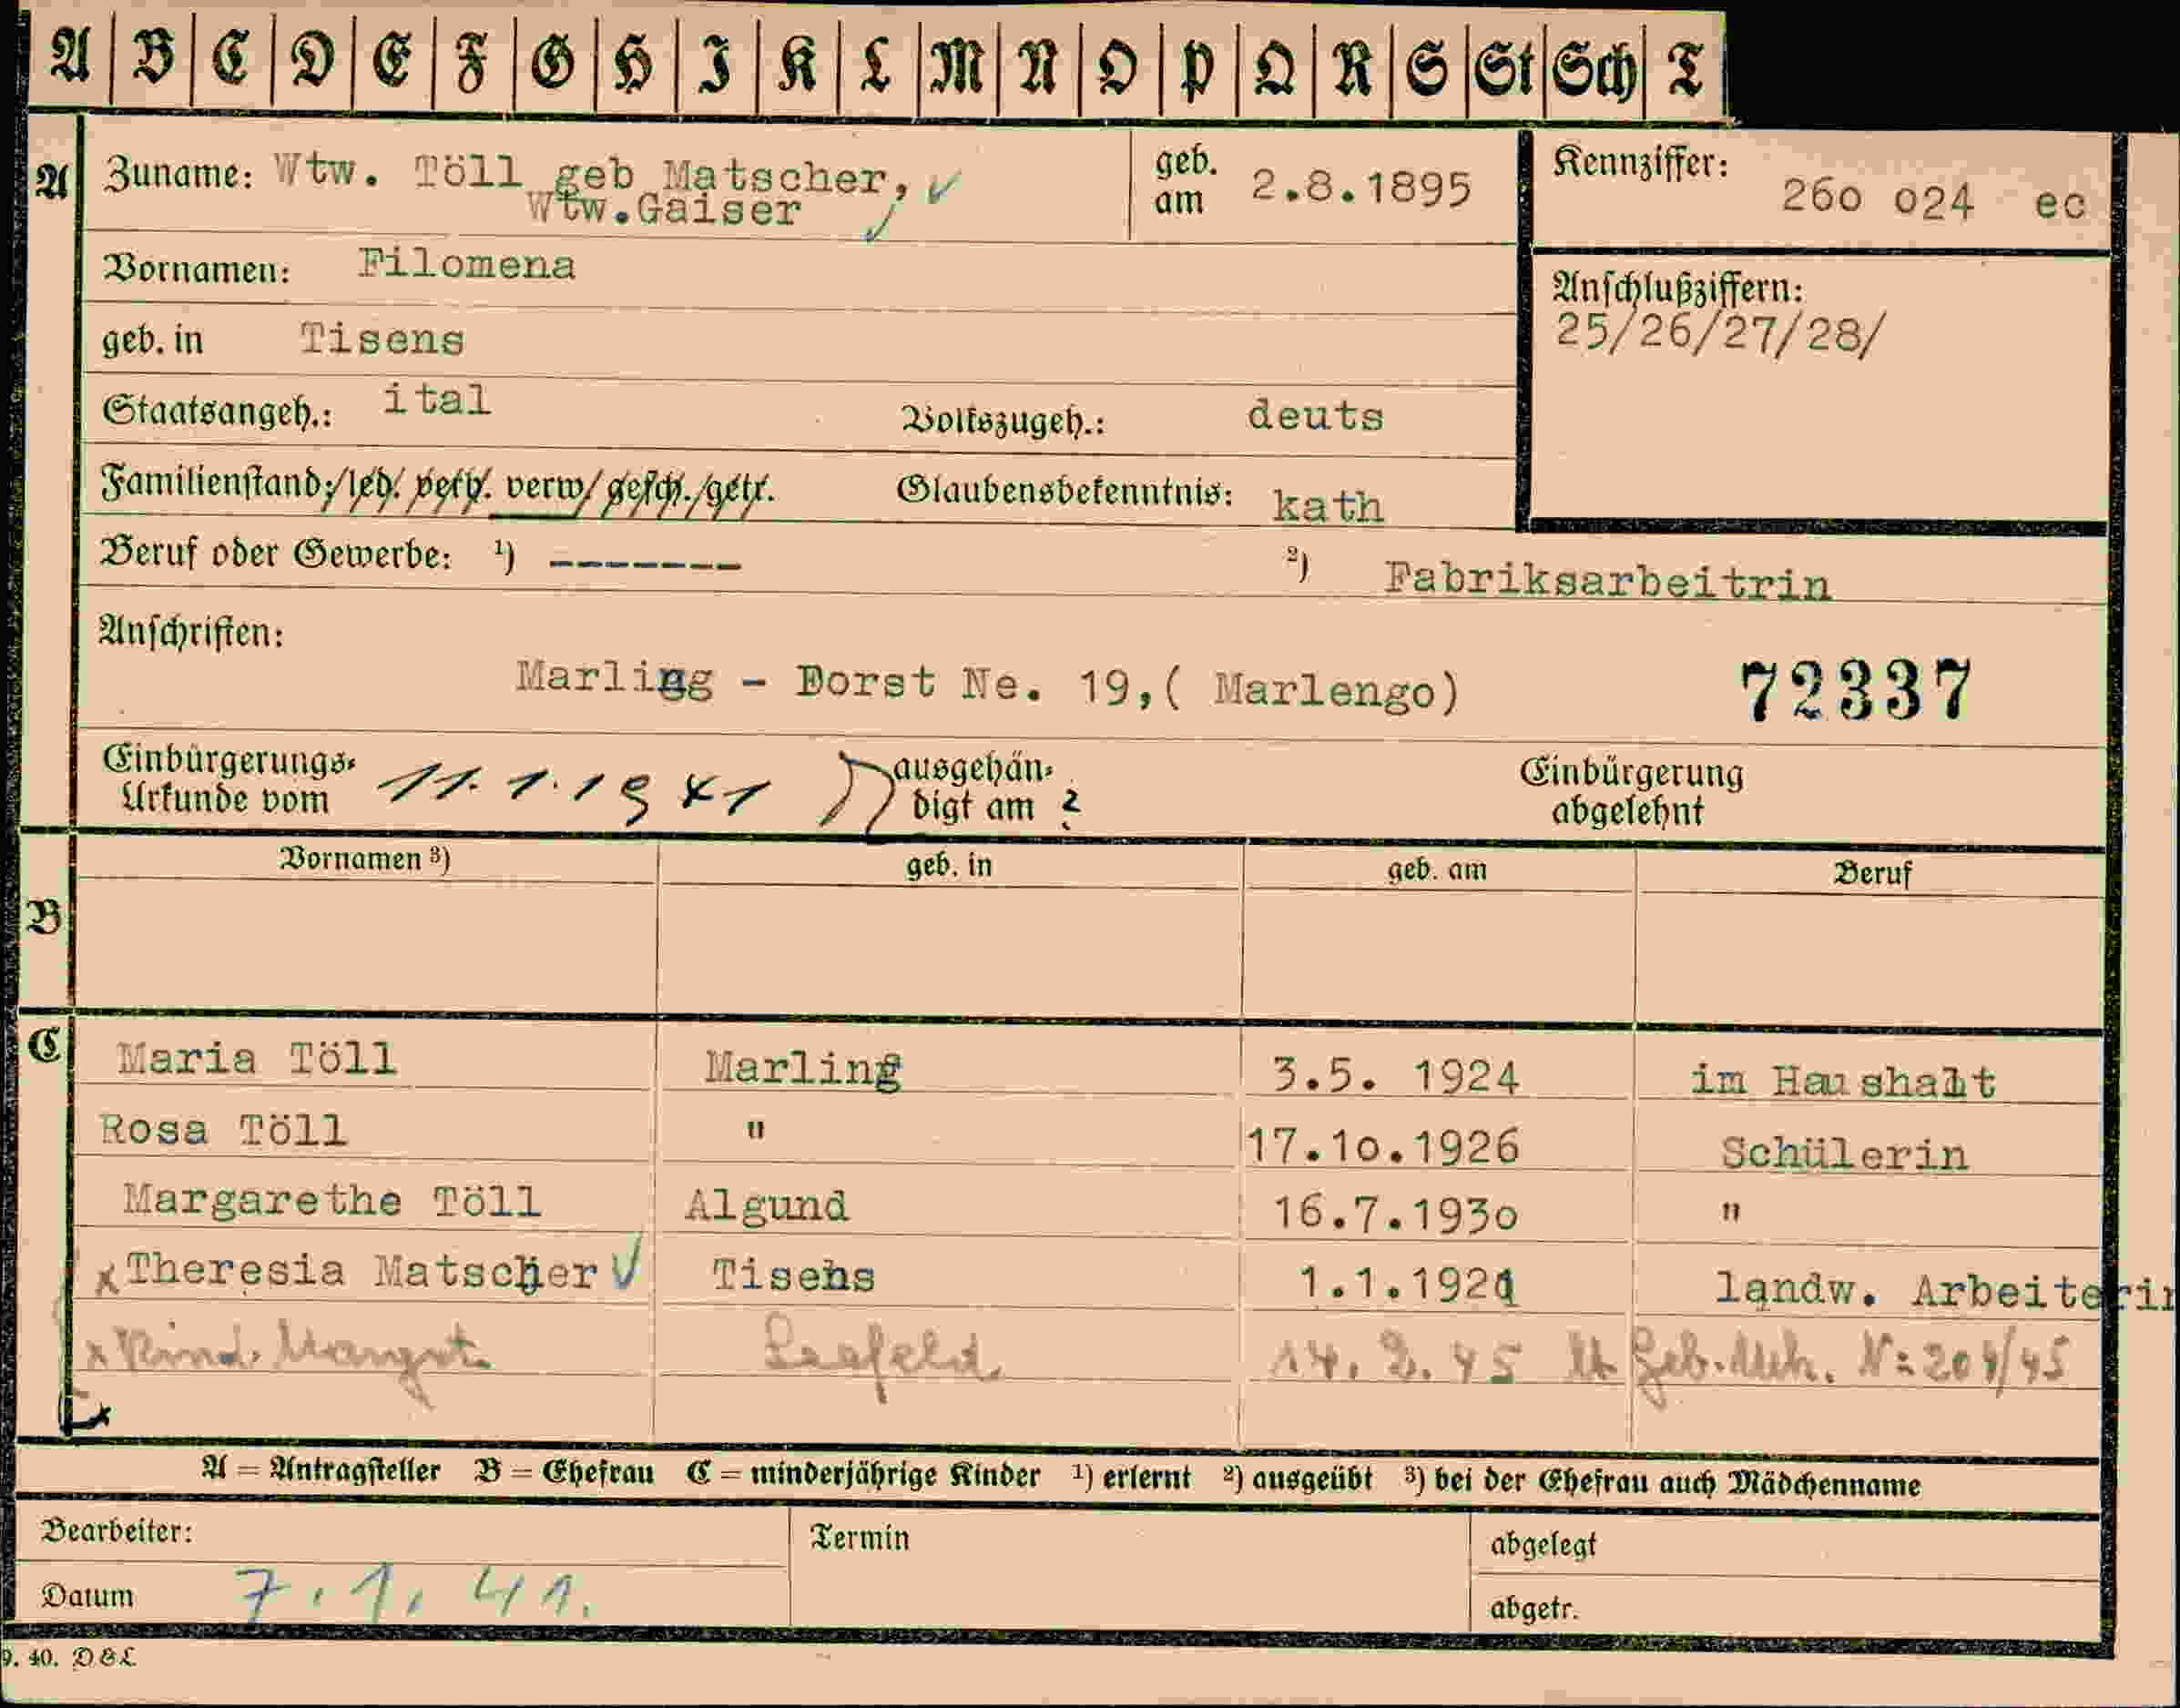 A B C D E F G H I K L M N O P Q R S St Sch T
A Zuname: Wtw. Töll geb Matscher, geb. am 2.8.1895 Kennziffer: 260 024 ec
Wtw.Gaiser
Vornamen: Filomena
Anschlußziffern:
25/26/27/28/
geb. in Tisens
Staatsangeh.: ital Volkszugeh.: deuts
Familienstand: led. verh. verw gesch. getr. Glaubensbekenntnis: kath
Beruf oder Gewerbe: 1) ------- 2) Fabriksarbeitrin
Anschriften:
Marling - Forst Ne. 19,( Marlengo) 72337
Einbürgerungs-Urkunde vom 11.1.1941 ausgehändigt am ? Einbürgerung abgelehnt
Vornamen 3) geb. in geb. am Beruf
B
C Maria Töll Marling 3.5. 1924 im Haushalt
Rosa Töll " 17.10.1926 Schülerin
Margarethe Töll Algund 16.7.1930 "
x Theresia Matscher Tisens 1.1.1921 landw. Arbeiterin
x Kind. Margot. Seefeld 14. 2. 45 lt Geb. Urk. N= 204/45
A = Antragsteller B = Ehefrau C = minderjährige Kinder 1) erlernt 2) ausgeübt 3) bei der Ehefrau auch Mädchenname
Bearbeiter: Termin abgelegt
Datum 7.1.41. abgetr.
9. 40. DBL